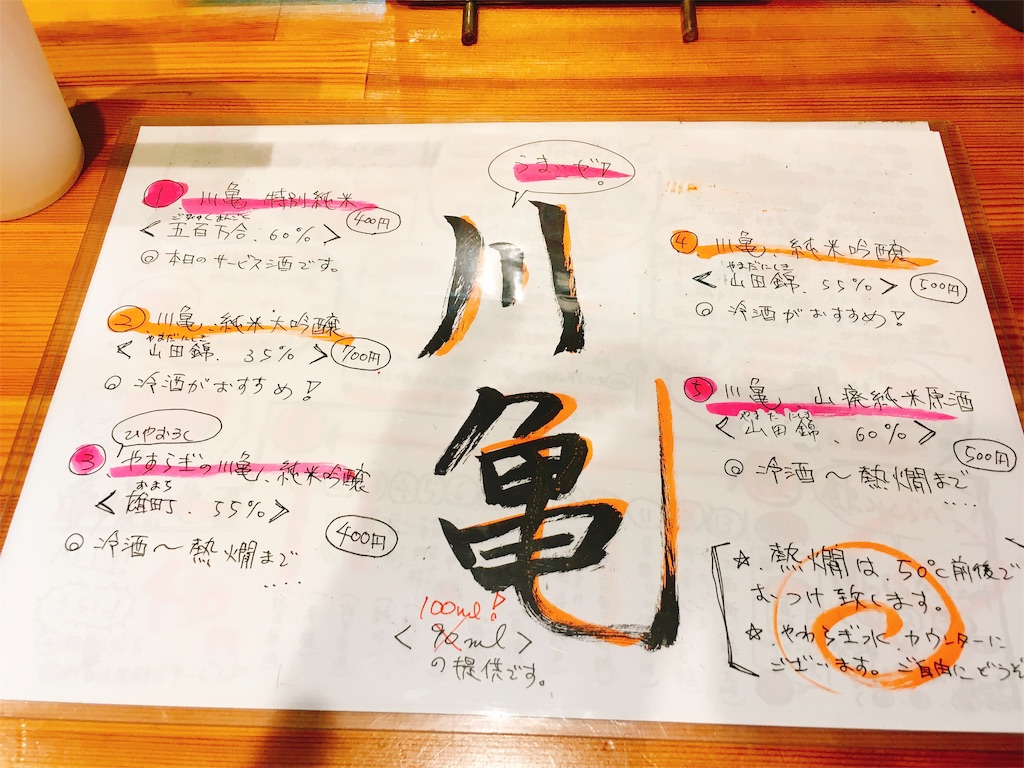 うまいぜ!
川亀
① 川亀 特別純米
400円
ごひゃくまんごく
<五百万合. 60%>
◎本日のサービス酒です。
② 川亀. 純米大吟醸
やまだにしき
<山田錦. 35%>
700円
◎冷酒がおすすめ!
ひやおろし
③ やすらぎの川亀. 純米吟醸
おまち
<雄町. 55%>
400円
◎冷酒〜熱燗まで
....
100ml!
<90ml>
の提供です。
④ 川亀. 純米吟醸
やまだにしき
<山田錦. 55%>
500円
◎冷酒がおすすめ!
⑤ 川亀 山廃純米原酒
やまだにしき
<山田錦. 60%>
500円
◎冷酒〜熱燗まで
....
☆. 熱燗は. 50℃前後で
おつけ致します。
☆. やわらぎ水. カウンターに
ございます。ご自由にどうぞ